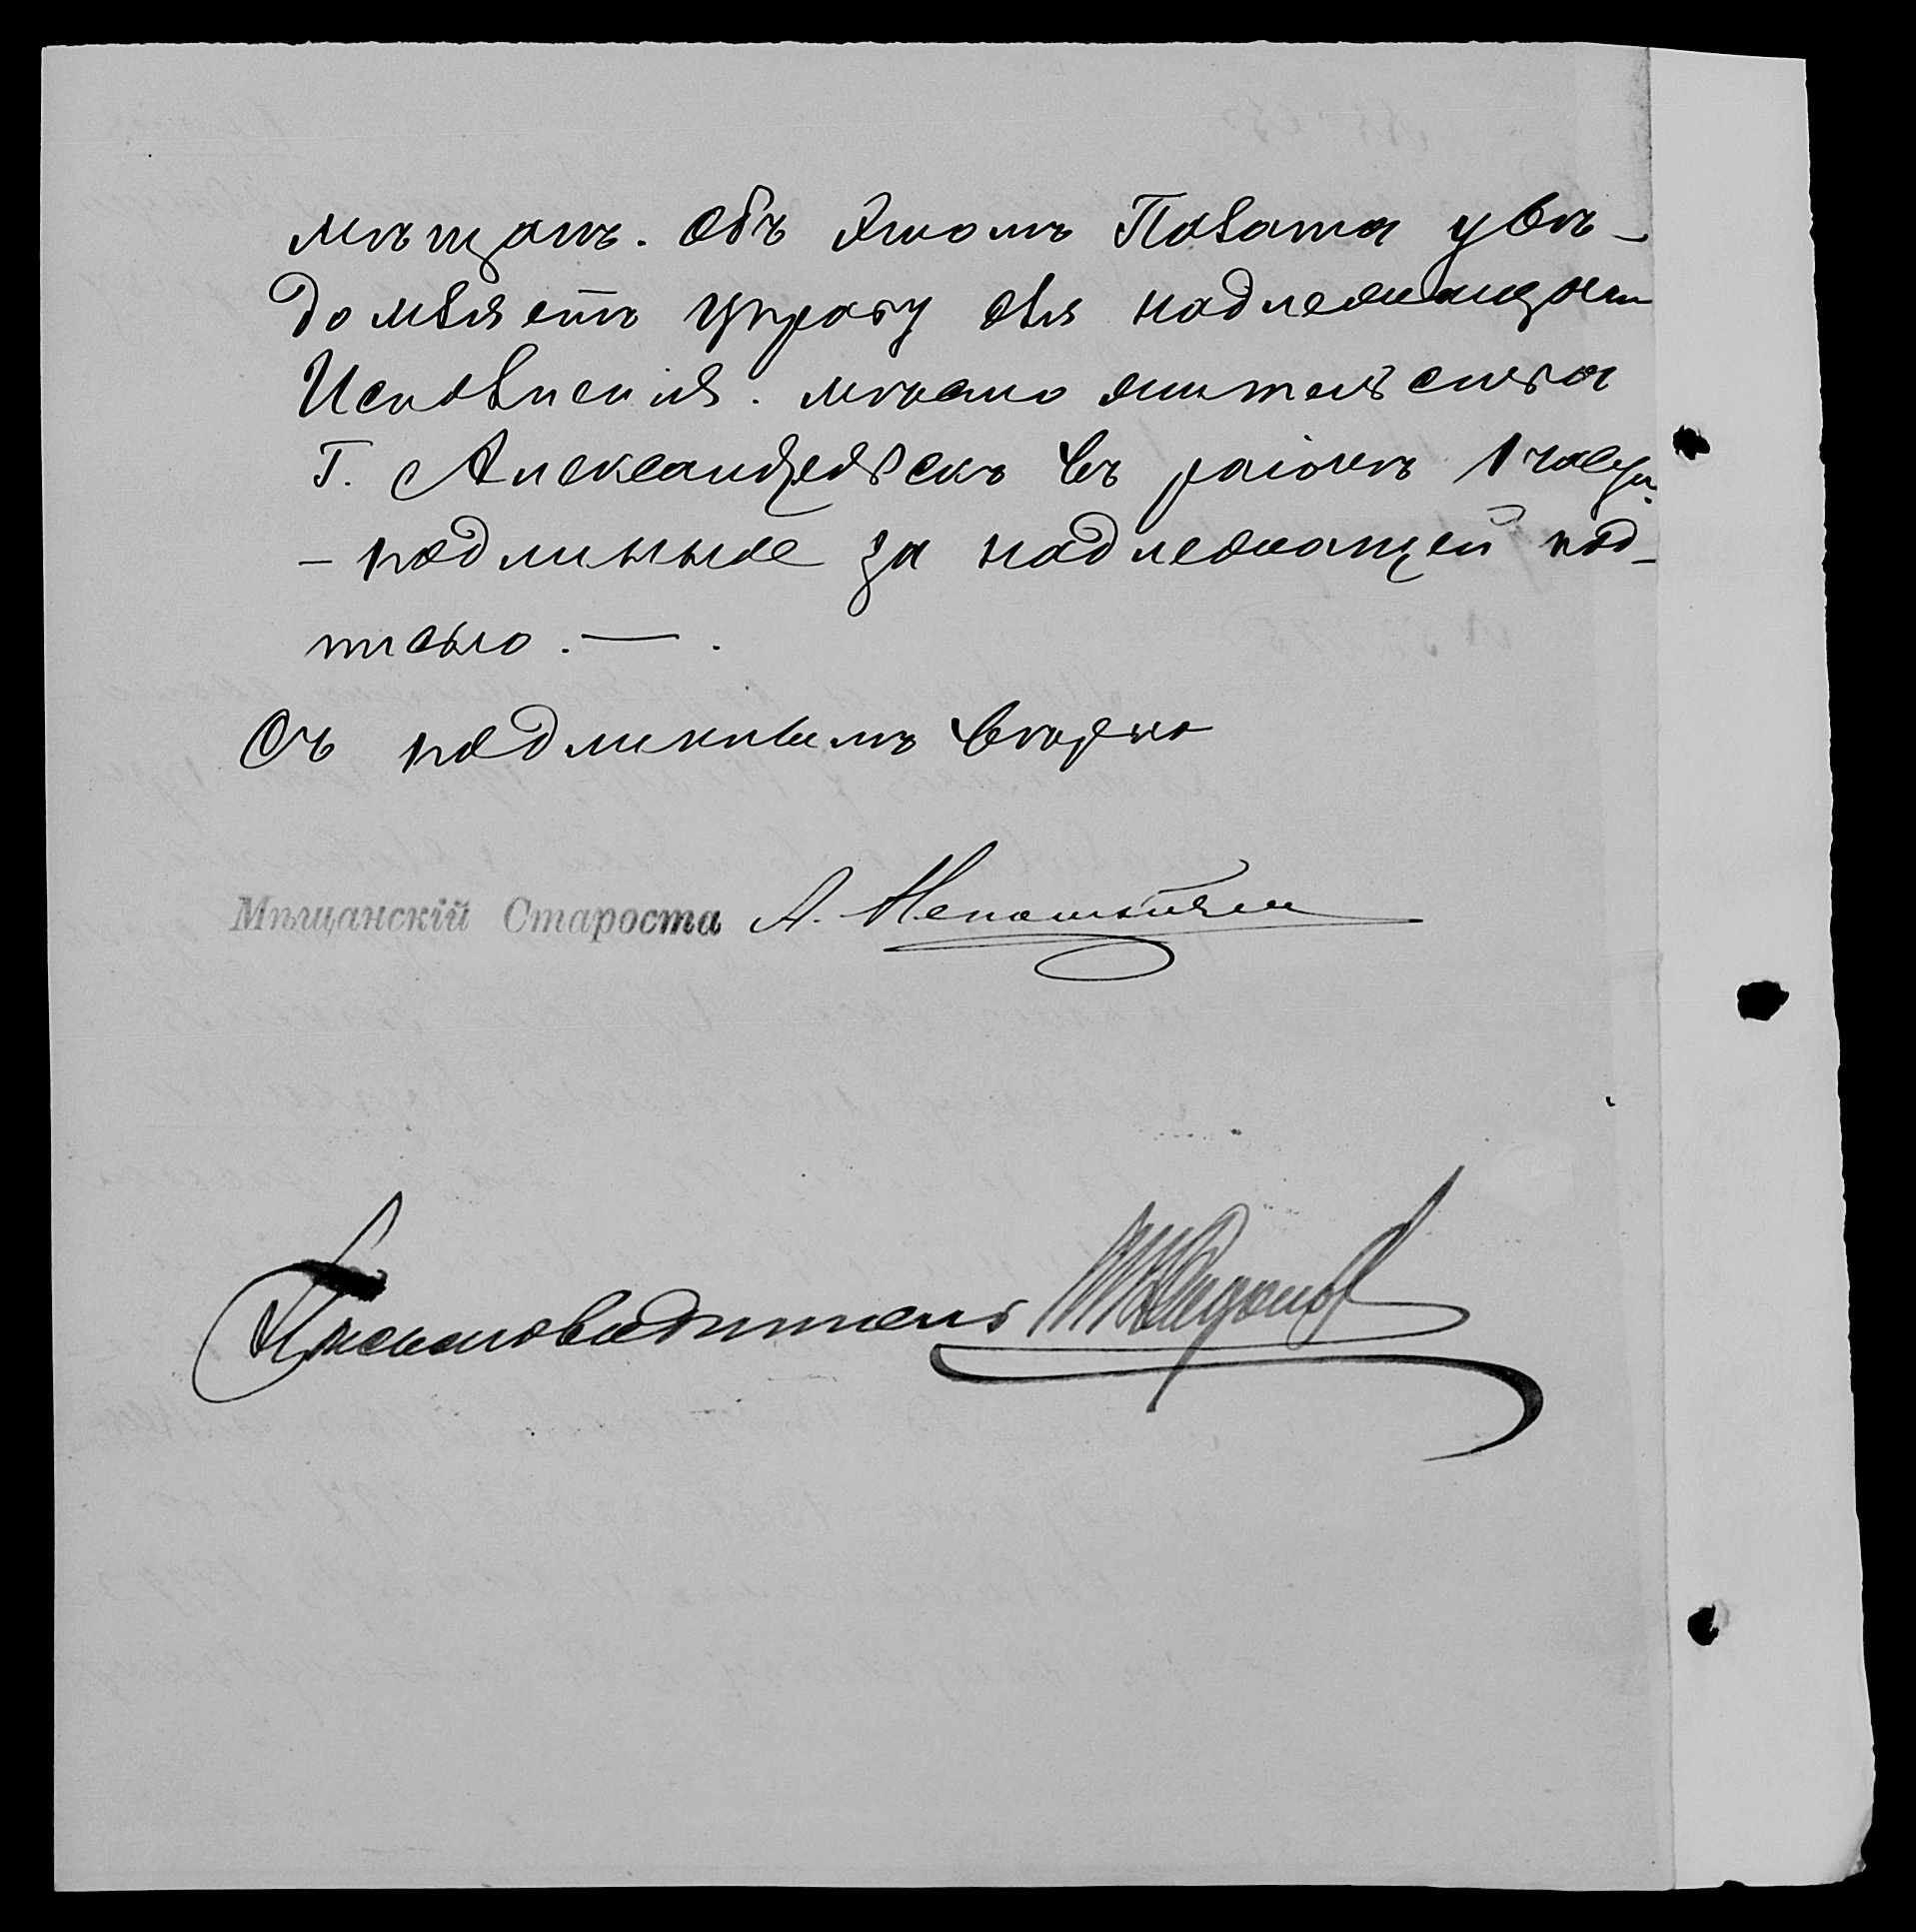 мѣщанъ. Объ этомъ Палата увѣ-
домляетъ Управу для надлежащаго
Исполненія. мѣсто жительства
Г. Александровскъ въ раіонѣ 1 части
- подлинное за надлежащей под-
писью. — .
Съ подлиннымъ вѣрно
Мѣщанскій Староста А.
Письмоводитель